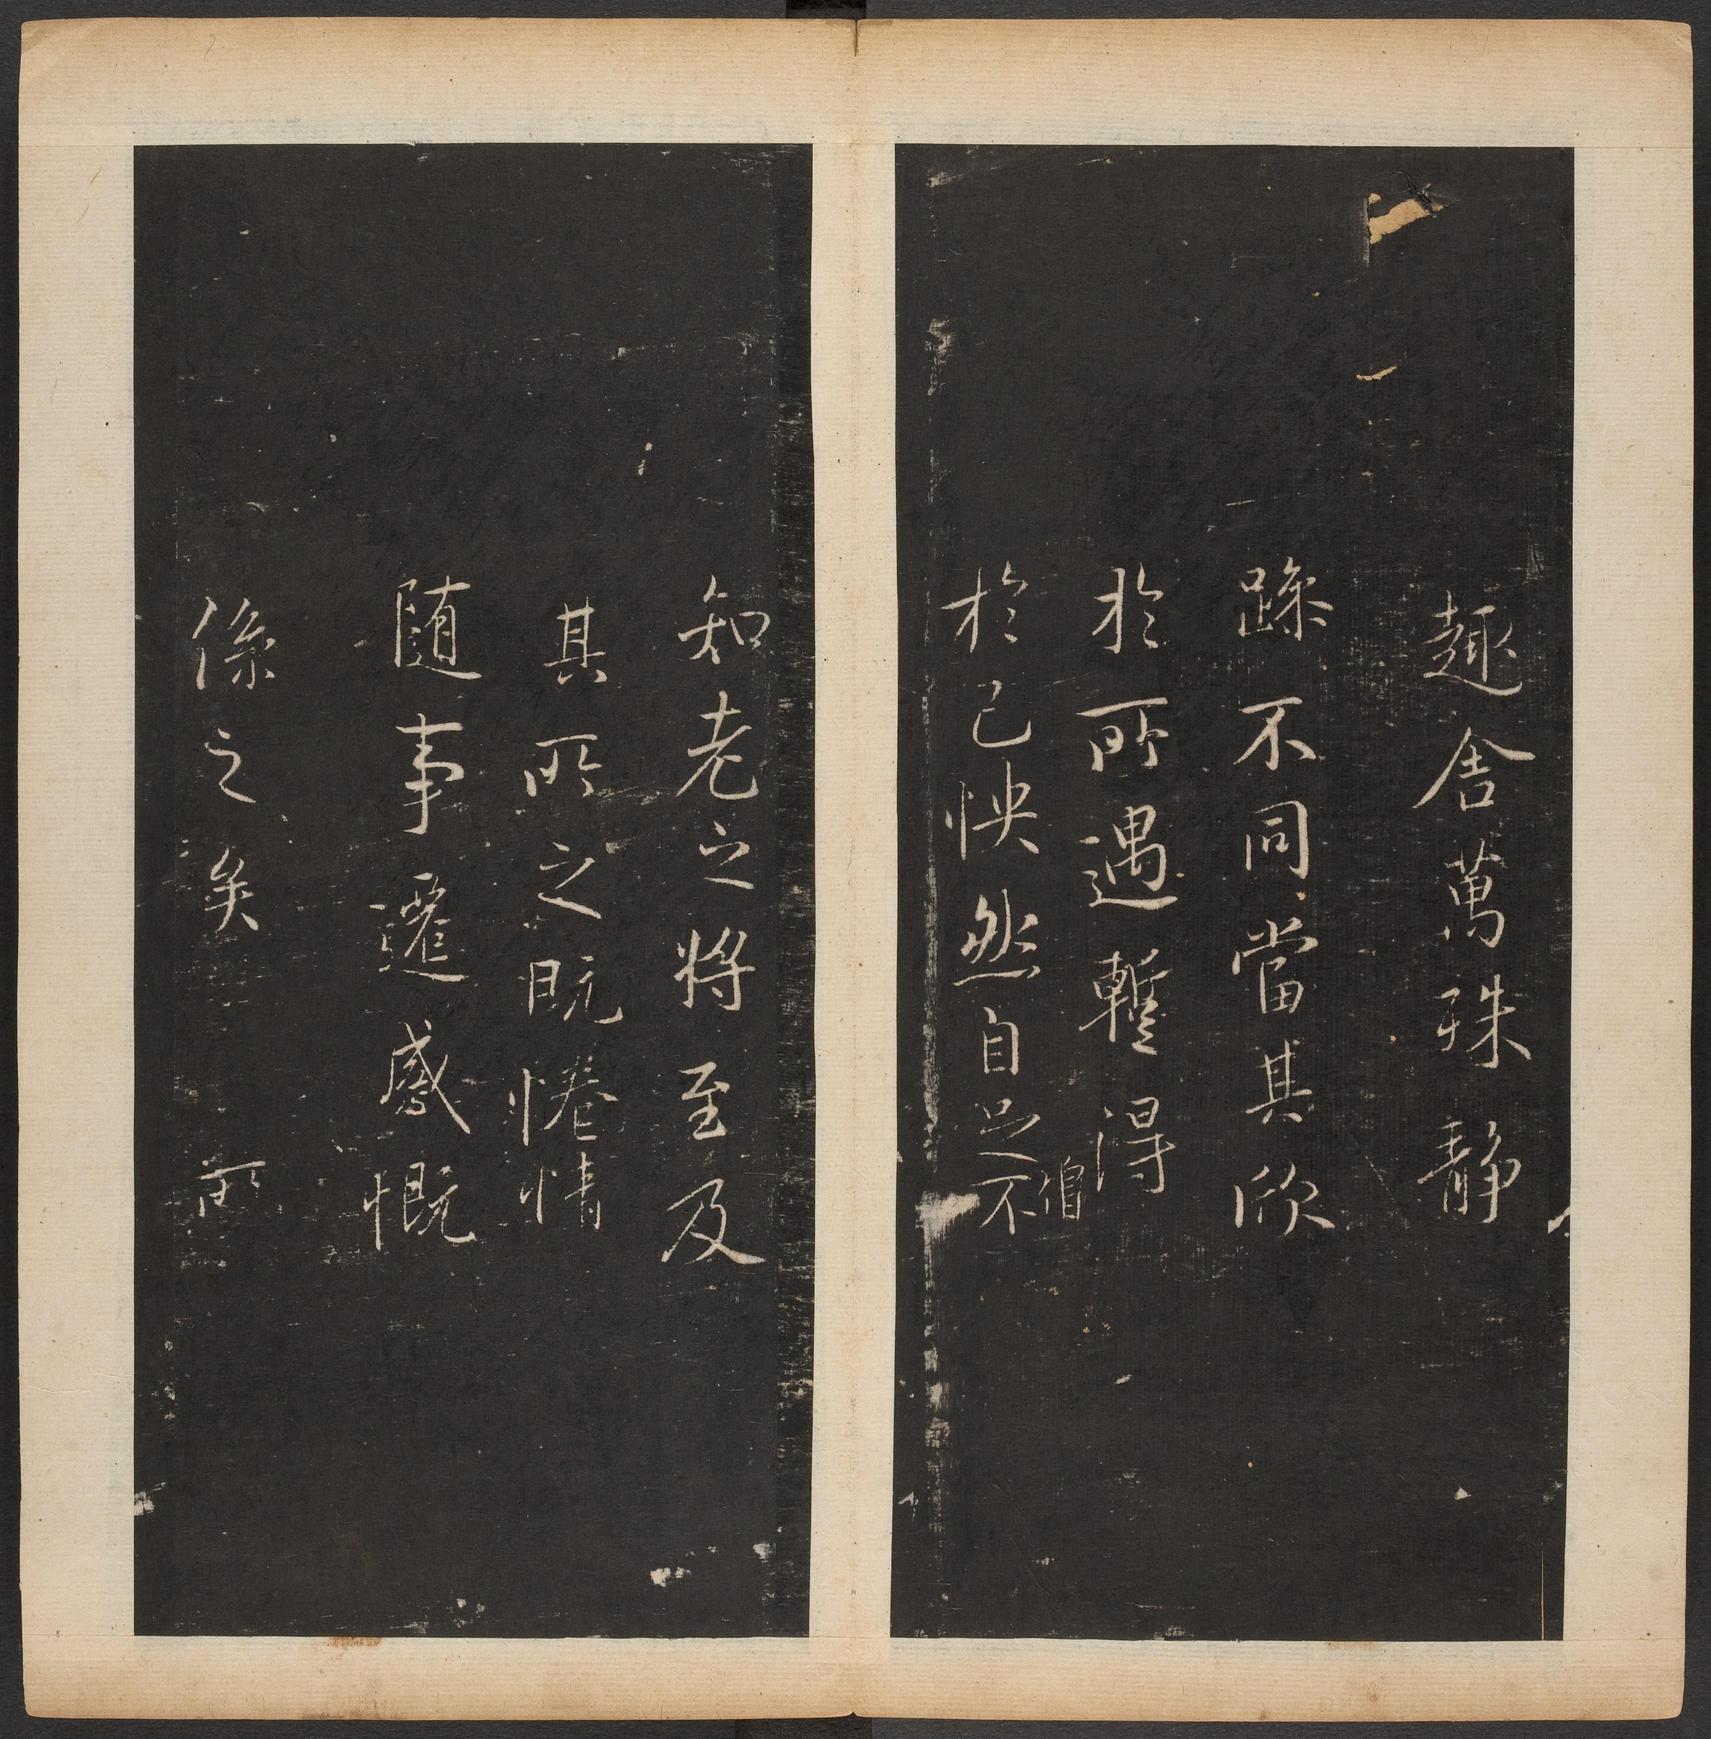 趣舍萬殊靜
躁不同當其欣
於所遇蹔得
於己怏然自足不
僧
知老之將至及
其所之既惓情
随事遷感慨
係之矣 所